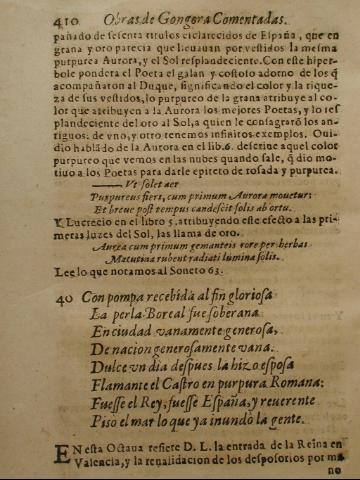 410 Obras de Gongora Comentadas.
pañado de sesenta titulos esclarecidos de España, que en
grana y oro parecia que lleuauan por vestidos la mesma
purpurea Aurora, y el Sol resplandeciente. Con este hiper-
bole pondera el Poeta el galan y costoso adorno de los q̃
acompañaron al Duque, significando el color y la rique-
za de sus vestidos, lo purpureo de la grana atribuye al co-
lor que atribuyen a la Aurora los mejores Poetas, y lo res
plandeciente del oro al Sol, a quien le consagrarõ los an-
tiguos: de vno, y otro tenemos infinitos exemplos. Oui-
dio hablãdo de la Aurora en el lib. 6. descriue aquel color
purpureo que vemos en las nubes quando sale, q̃ dio mo-
tiuo a los Poetas para darle epiteto de rosada y purpurea.
Vt solet aer
Purpureus fieri, cum primum Aurora mouetur:
Et breue post tempus candescit solis ab ortu.
Y Lucrecio en el libro 5. atribuyendo este efecto a las pri-
meras luzes del Sol, las llama de oro.
Aurea cum primum gemanteis rore per herbas
Matutina rubent radiati lumina solis.
Lee lo que notamos al Soneto 63.
40 Con pompa recebida al fin gloriosa
La perla Boreal fue soberana
En ciudad vanamente generosa,
De nacion generosamente vana.
Dulce vn dia despues la hizo esposa
Flamante el Castro en purpura Romana:
Fuesse el Rey, fuesse España, y reuerente
Piso el mar lo que ya inundò la gente.
EN esta Octaua refiere D. L. la entrada de la Reina en
Valencia, y la reualidacion de los desposorios por ma
no